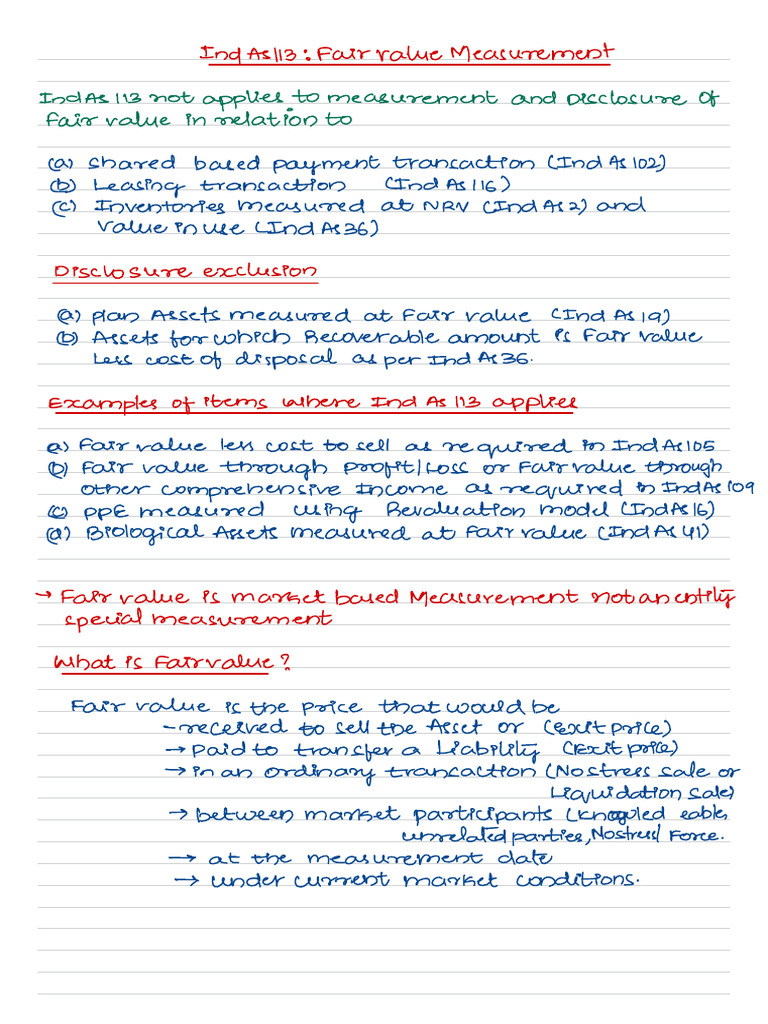 Ind As 113 : Fair value Measurement
Ind As 113 not applies to measurement and Disclosure Of
Fair value in relation to
(a) shared based payment transaction (Ind As 102)
(b) Leasing transaction (Ind As 116)
(c) Inventories measured at NRV (Ind As 2) and
value in use (Ind As 36)
Disclosure exclusion
(a) plan Assets measured at Fair value (Ind As 19)
(b) Assets for which Recoverable amount is Fair value
Less cost of disposal as per Ind As 36.
Examples of items where Ind As 113 applies
a) Fair value less cost to sell as required in Ind As 105
(b) Fair value through Profit/Loss or Fair value through
other comprehensive Income as required in Ind As 109
(c) PPE measured using Revaluation model (Ind As 16)
(d) Biological Assets measured at Fair value (Ind As 41)
→ Fair value is market based Measurement not an entity
special measurement
What is Fair value?
Fair value is the price that would be
- received to sell the Asset or (exit price)
→ Paid to transfer a Liability (Exit price)
→ in an ordinary transaction (No stress sale or
Liquidation sale)
→ between market participants (knoguled eable,
unrelated parties, No stress/ Force.
→ at the measurement date
→ under current market conditions.